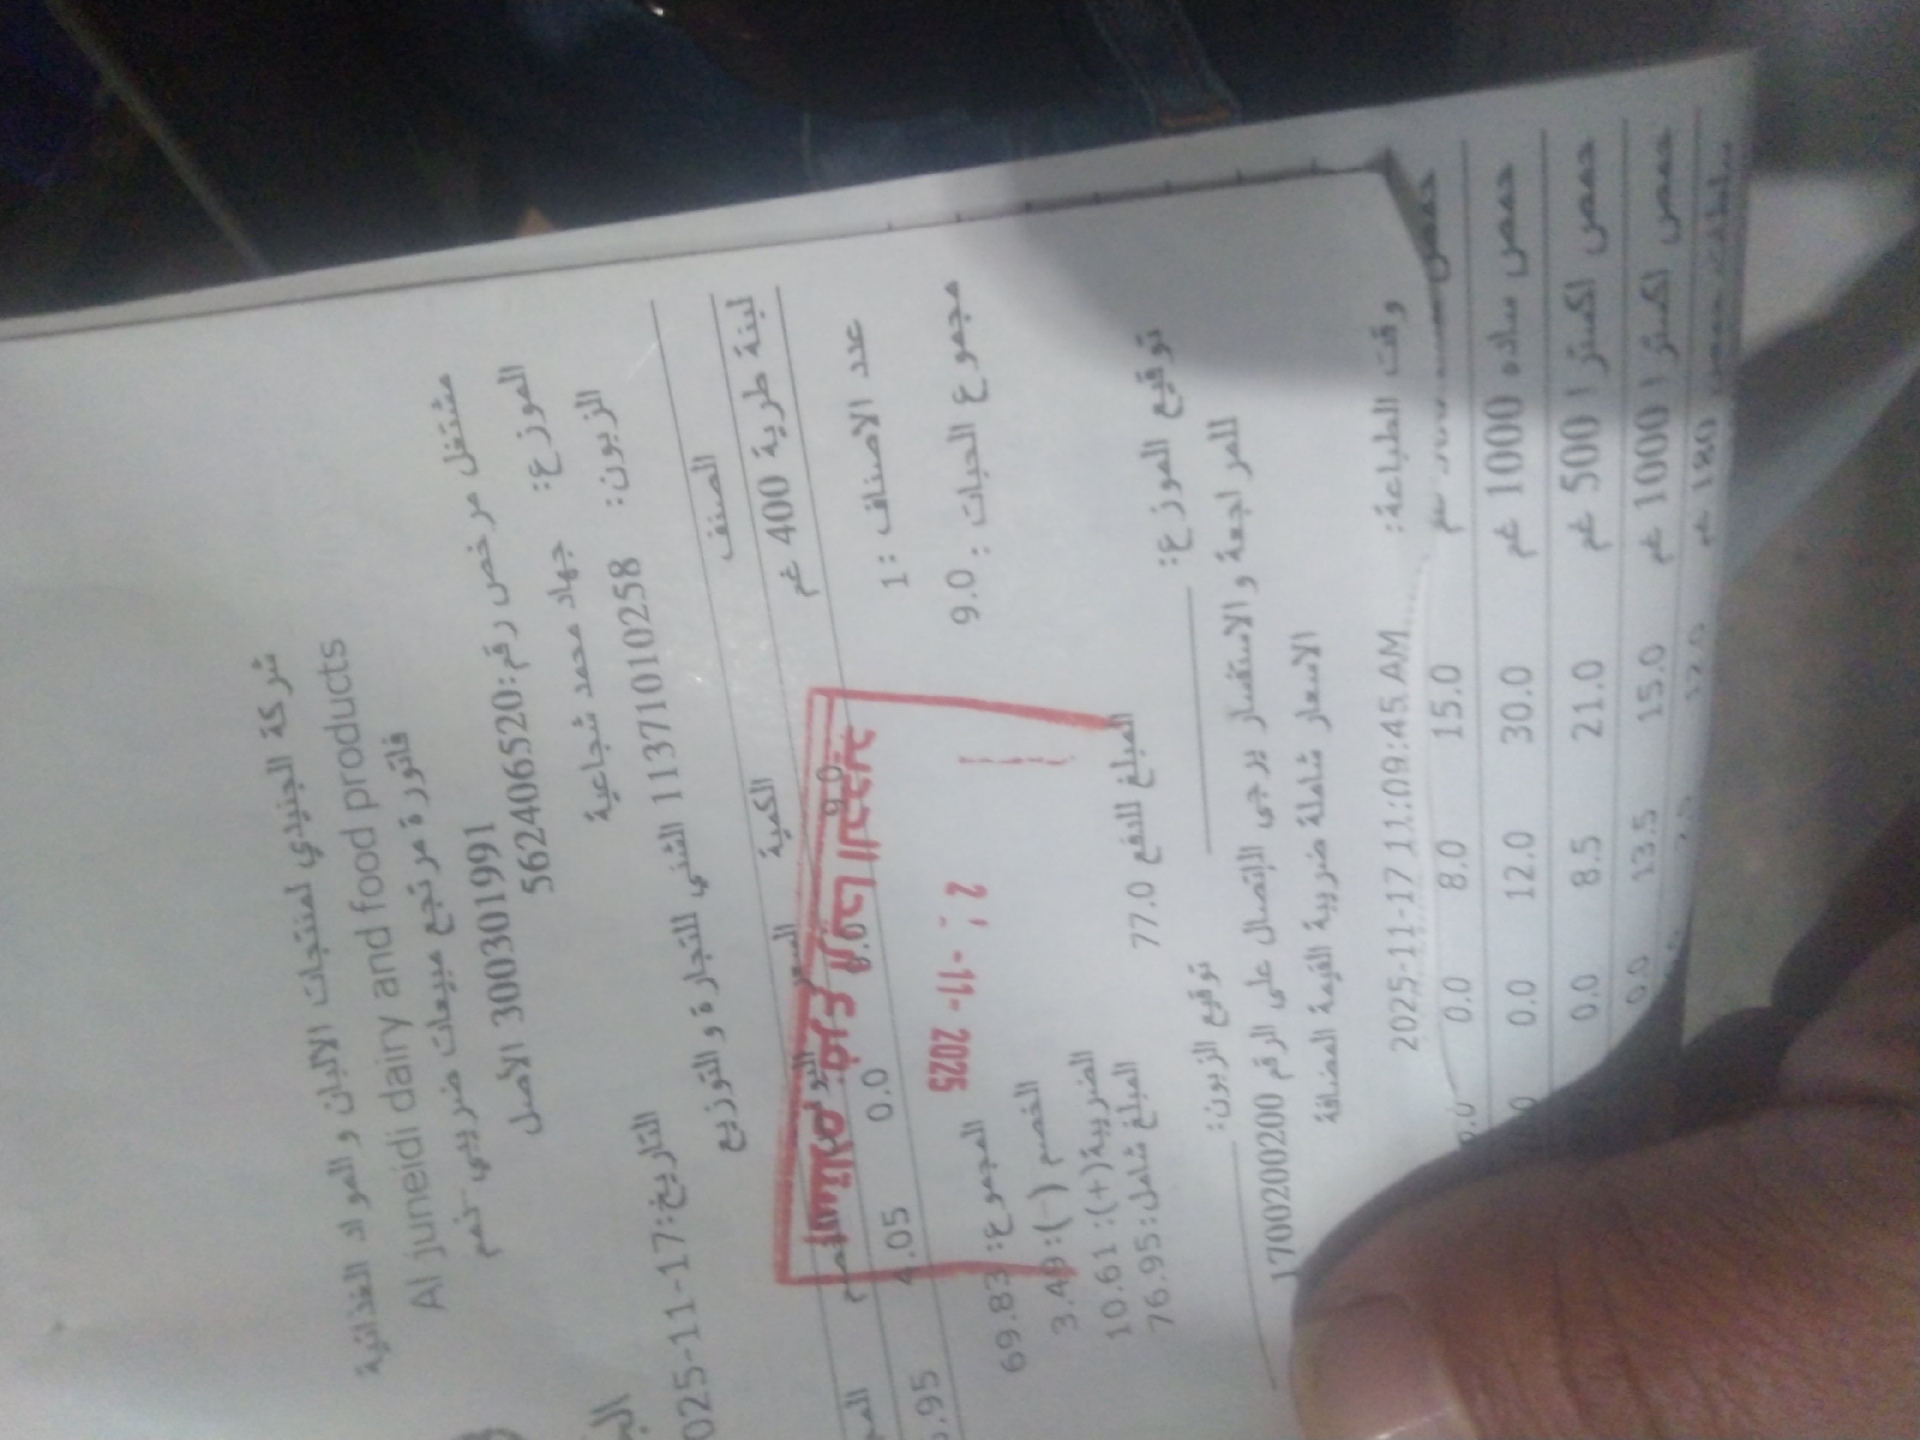 شركة الجنيدي لمنتجات الالبان و المواد الغذائية
Al juneidi dairy and food products
فاتورة مرتجع مبيعات ضريبي
مشتغل مرخص رقم:562406520
3003019991 الاصل
الموزع: جهاد محمد شجاعية
الزبون: 1137101010258 الشني للتجارة و التوزيع
التاريخ:025-11-17
الصنف الكمية السعر
لبنة طرية 400 غم 9.0 0.0 4.05 6.95
2025 -11-
عدد الاصناف : 1
مجموع الحبات : 9.0
المجموع: 69.83
الخصم (-): 3.49
الضريبة(+): 10.61
المبلغ شامل: 76.95
المبلغ للدفع 77.0
توقيع الموزع:
توقيع الزبون:
للمراجعة و الاستفسار يرجى الاتصال على الرقم 1700200200
الاسعار شاملة ضريبة القيمة المضافة
وقت الطباعة: 2025-11-17 11:09:45 AM
حمص غم 15.0 8.0 0.0
حمص ساده 1000 غم 30.0 12.0 0.0
حمص اكسترا 500 غم 21.0 8.5 0.0
حمص اكسترا 1000 غم 15.0 13.5 0.0
180 غم